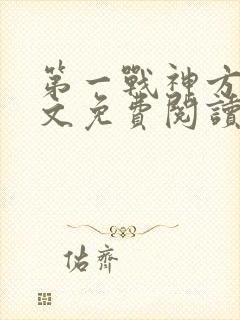 第一戰神方
文免費閱讀
佑齊